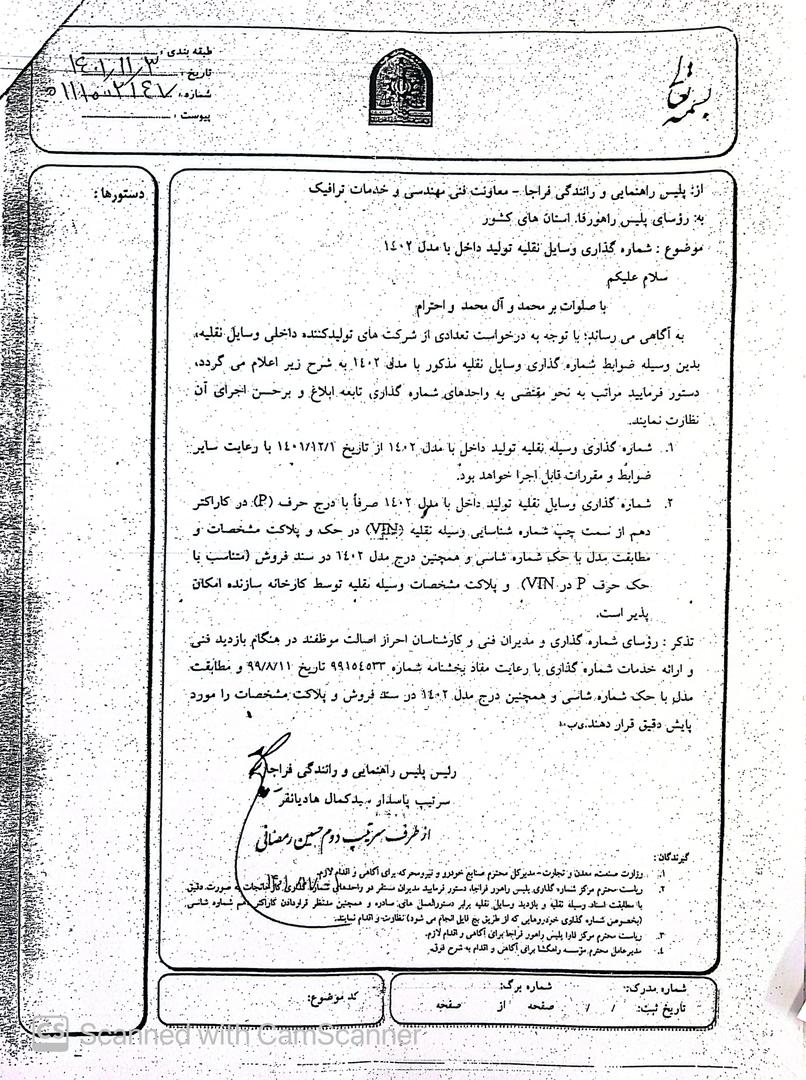 بسمه تعالی
طبقه بندی :
تاریخ : ۱٤۰۱/۱۱/۳
شماره :
پیوست :
دستورها :
از: پلیس راهنمایی و رانندگی فراجا – معاونت فنی مهندسی و خدمات ترافیک
به: رؤسای پلیس راهورفا. استان های کشور
موضوع : شماره گذاری وسایل نقلیه تولید داخل با مدل ۱٤۰۲
سلام علیکم
با صلوات بر محمد و آل محمد و احترام
به آگاهی می رساند؛ با توجه به درخواست تعدادی از شرکت های تولیدکننده داخلی وسایل نقلیه،
بدین وسیله ضوابط شماره گذاری وسایل نقلیه مذکور با مدل ۱٤۰۲ به شرح زیر اعلام می گردد،
دستور فرمایید مراتب به نحو مقتضی به واحدهای شماره گذاری تابعه ابلاغ و برحسن اجرای آن
نظارت نمایند.
۱. شماره گذاری وسیله نقلیه تولید داخل با مدل ۱٤۰۲ از تاریخ ۱٤۰۱/۱۲/۱ با رعایت سایر
ضوابط و مقررات قابل اجرا خواهد بود.
۲. شماره گذاری وسایل نقلیه تولید داخل با مدل ۱٤۰۲ صرفاً با درج حرف (P) در کاراکتر
دهم از سمت چپ شماره شناسایی وسیله نقلیه (VIN) در حک و پلاکت مشخصات و
مطابقت مدل با حک شماره شاسی و همچنین درج مدل ۱٤۰۲ در سند فروش (متناسب با
حک حرف P در VIN) و پلاکت مشخصات وسیله نقلیه توسط کارخانه سازنده امکان
پذیر است.
تذکر : رؤسای شماره گذاری و مدیران فنی و کارشناسان احراز اصالت موظفند در هنگام بازدید فنی
و ارائه خدمات شماره گذاری با رعایت مفاد بخشنامه شماره ۹۹۱۵٤۵۳۳ تاریخ ۹۹/۸/۱۱ و مطابقت
مدل با حک شماره شاسی و همچنین درج مدل ۱٤۰۲ در سند فروش و پلاکت مشخصات را مورد
پایش دقیق قرار دهند.
رئیس پلیس راهنمایی و رانندگی فراجا
سرتیپ پاسدار سیدکمال هادیانفر
از طرف سرتیپ دوم حسین رمضانی
گیرندگان:
۱. وزارت صنعت، معدن و تجارت–مدیرکل محترم صنایع خودرو و نیرومحرکه برای آگاهی و اقدام لازم.
۲. ریاست محترم مرکز شماره گذاری پلیس راهور فراجا، دستور فرمایید مدیران مستقر در واحدهای شماره گذاری کارخانجات به صورت دقیق
با مطابقت اسناد وسیله نقلیه و بازدید وسایل نقلیه برابر دستورالعمل های صادره و همچنین مدنظر قراردادن کاراکتر دهم شماره شاسی
(بخصوص شماره گذاری خودروهایی که از طریق پچ فایل انجام می شود) نظارت و اقدام نمایند.
۳. ریاست محترم مرکز فاوا پلیس راهور فراجا برای آگاهی و اقدام لازم.
٤. مدیرعامل محترم مؤسسه راهگشا برای آگاهی و اقدام به شرح فوق.
شماره مدرک:
شماره برگ:
تاریخ ثبت: / /
صفحه از صفحه
کد موضوع:
CS Scanned with CamScanner